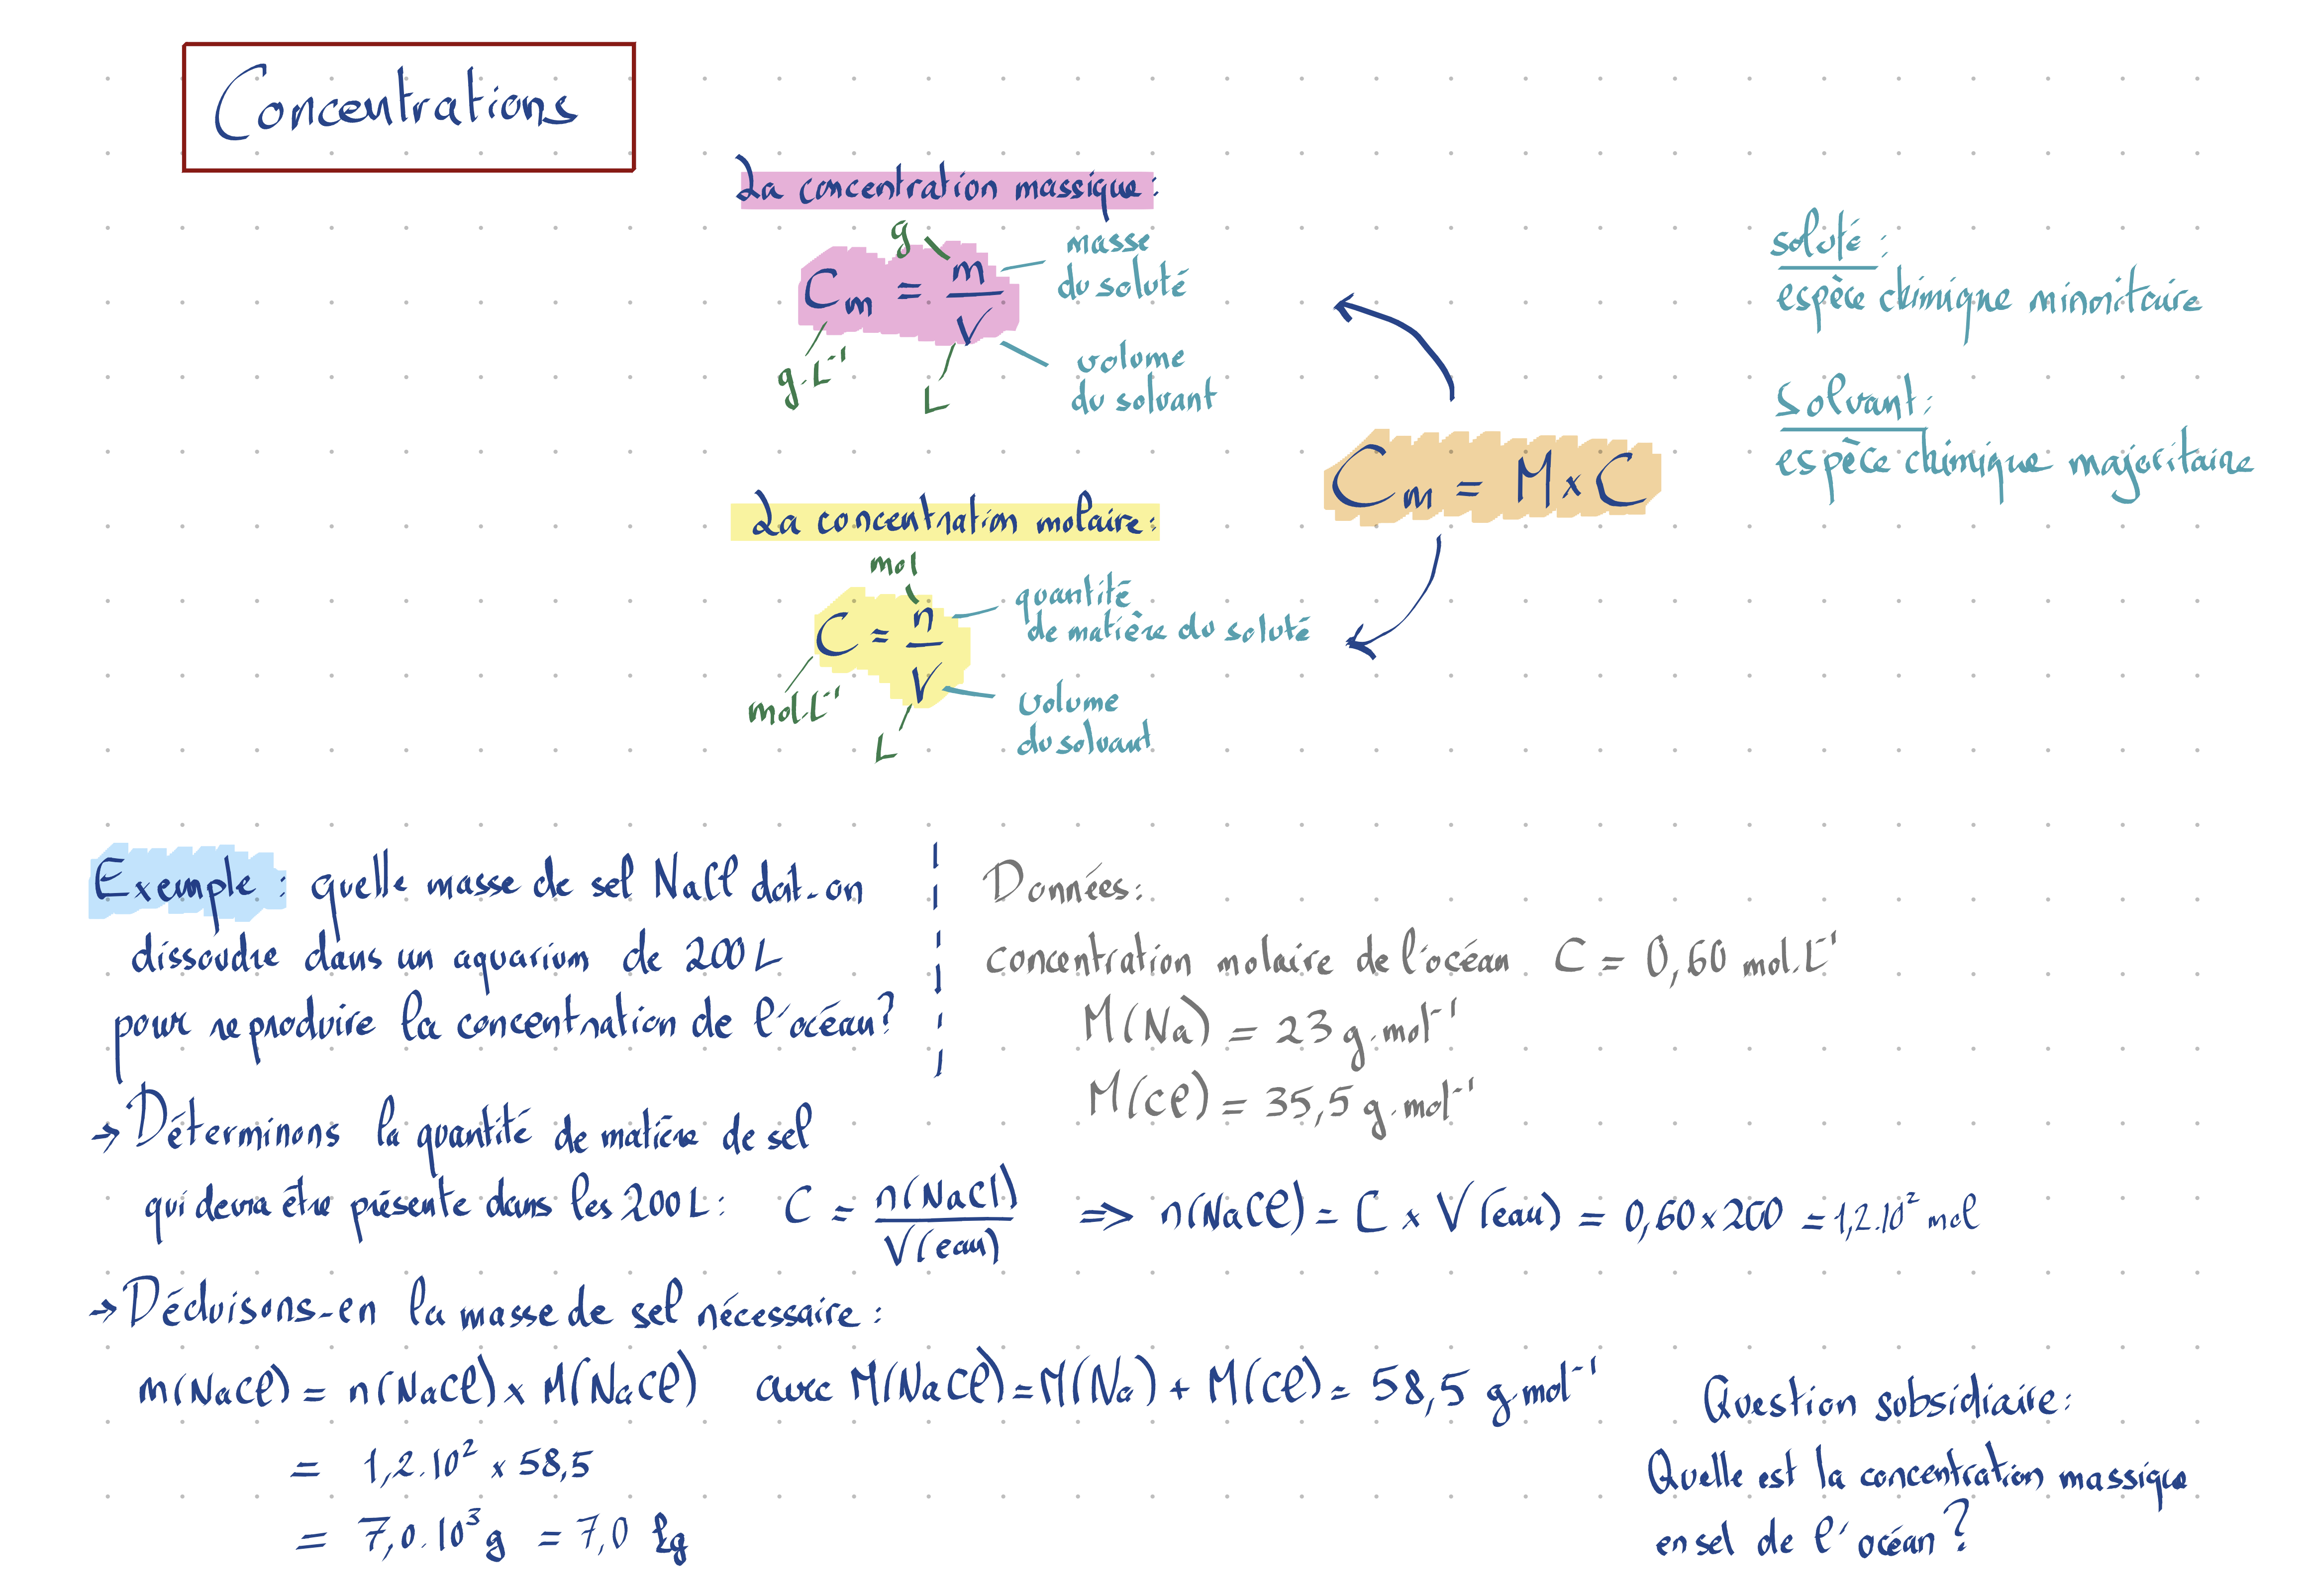 Concentrations
La concentration massique :
Cm = m/V
g
g.L⁻¹
L
masse
du soluté
volume
du solvant
La concentration molaire :
C = n/V
mol
mol.L⁻¹
L
quantité
de matière du soluté
Volume
du solvant
Cm = M × C
soluté :
espèce chimique minoritaire
Solvant :
espèce chimique majoritaire
Exemple : quelle masse de sel NaCl doit-on
dissoudre dans un aquarium de 200 L
pour reproduire la concentration de l'océan ?
Données :
concentration molaire de l'océan C = 0,60 mol.L⁻¹
M(Na) = 23 g.mol⁻¹
M(Cl) = 35,5 g.mol⁻¹
→ Déterminons la quantité de matière de sel
qui devra être présente dans les 200 L : C = n(NaCl)/V(eau) ⇒ n(NaCl) = C × V(eau) = 0,60 × 200 = 1,2.10² mol
→ Déduisons-en la masse de sel nécessaire :
m(NaCl) = n(NaCl) × M(NaCl) avec M(NaCl) = M(Na) + M(Cl) = 58,5 g.mol⁻¹
= 1,2.10² × 58,5
= 7,0.10³ g = 7,0 kg
Question subsidiaire :
Quelle est la concentration massique
en sel de l'océan ?